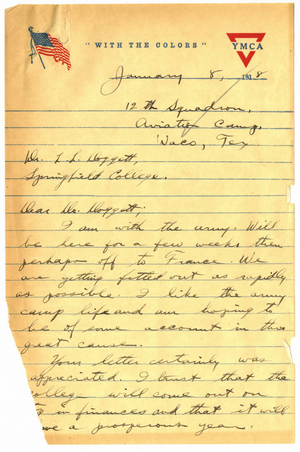 "WITH THE COLORS"
YMCA
January 8, 1918
12th Squadron,
Aviation Camp,
Waco, Tex
Dr. L. L. Doggett,
Springfield College.
Dear Dr. Doggett;
I am with the army. Will
be here for a few weeks then
perhaps off to France. We
are getting fitted out as rapidly
as possible. I like the army
camp life and am hoping to
be of some account in this
great cause.
Your letter certainly was
appreciated. I trust that the
college will come out on
in finances and that it will
a prosperous year.